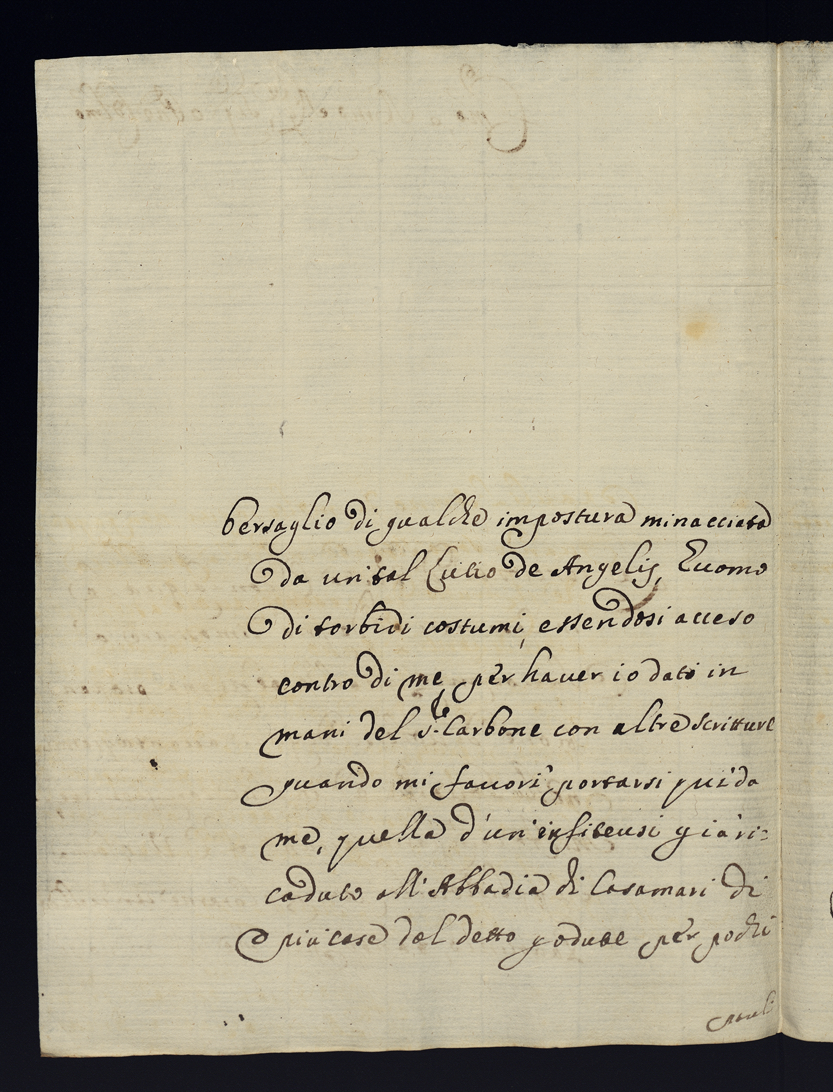 bersaglio di qualche impostura minacciata
da un tal Lutio de Angelis, Huomo
di torbidi costumi, essendosi acceso
contro di me, per haver io dato in
mani del S.r Carbone con altre scritture
quando mi favorì portarsi qui da
me, quella d'un'enfiteusi già ri=
caduto all'Abbadia di Casamari di
più case del detto godute per pochi